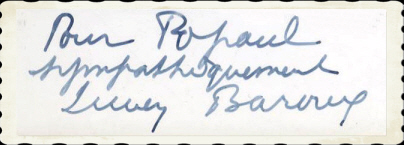 Pour Popaul
sympathiquement
Lucien Baroux